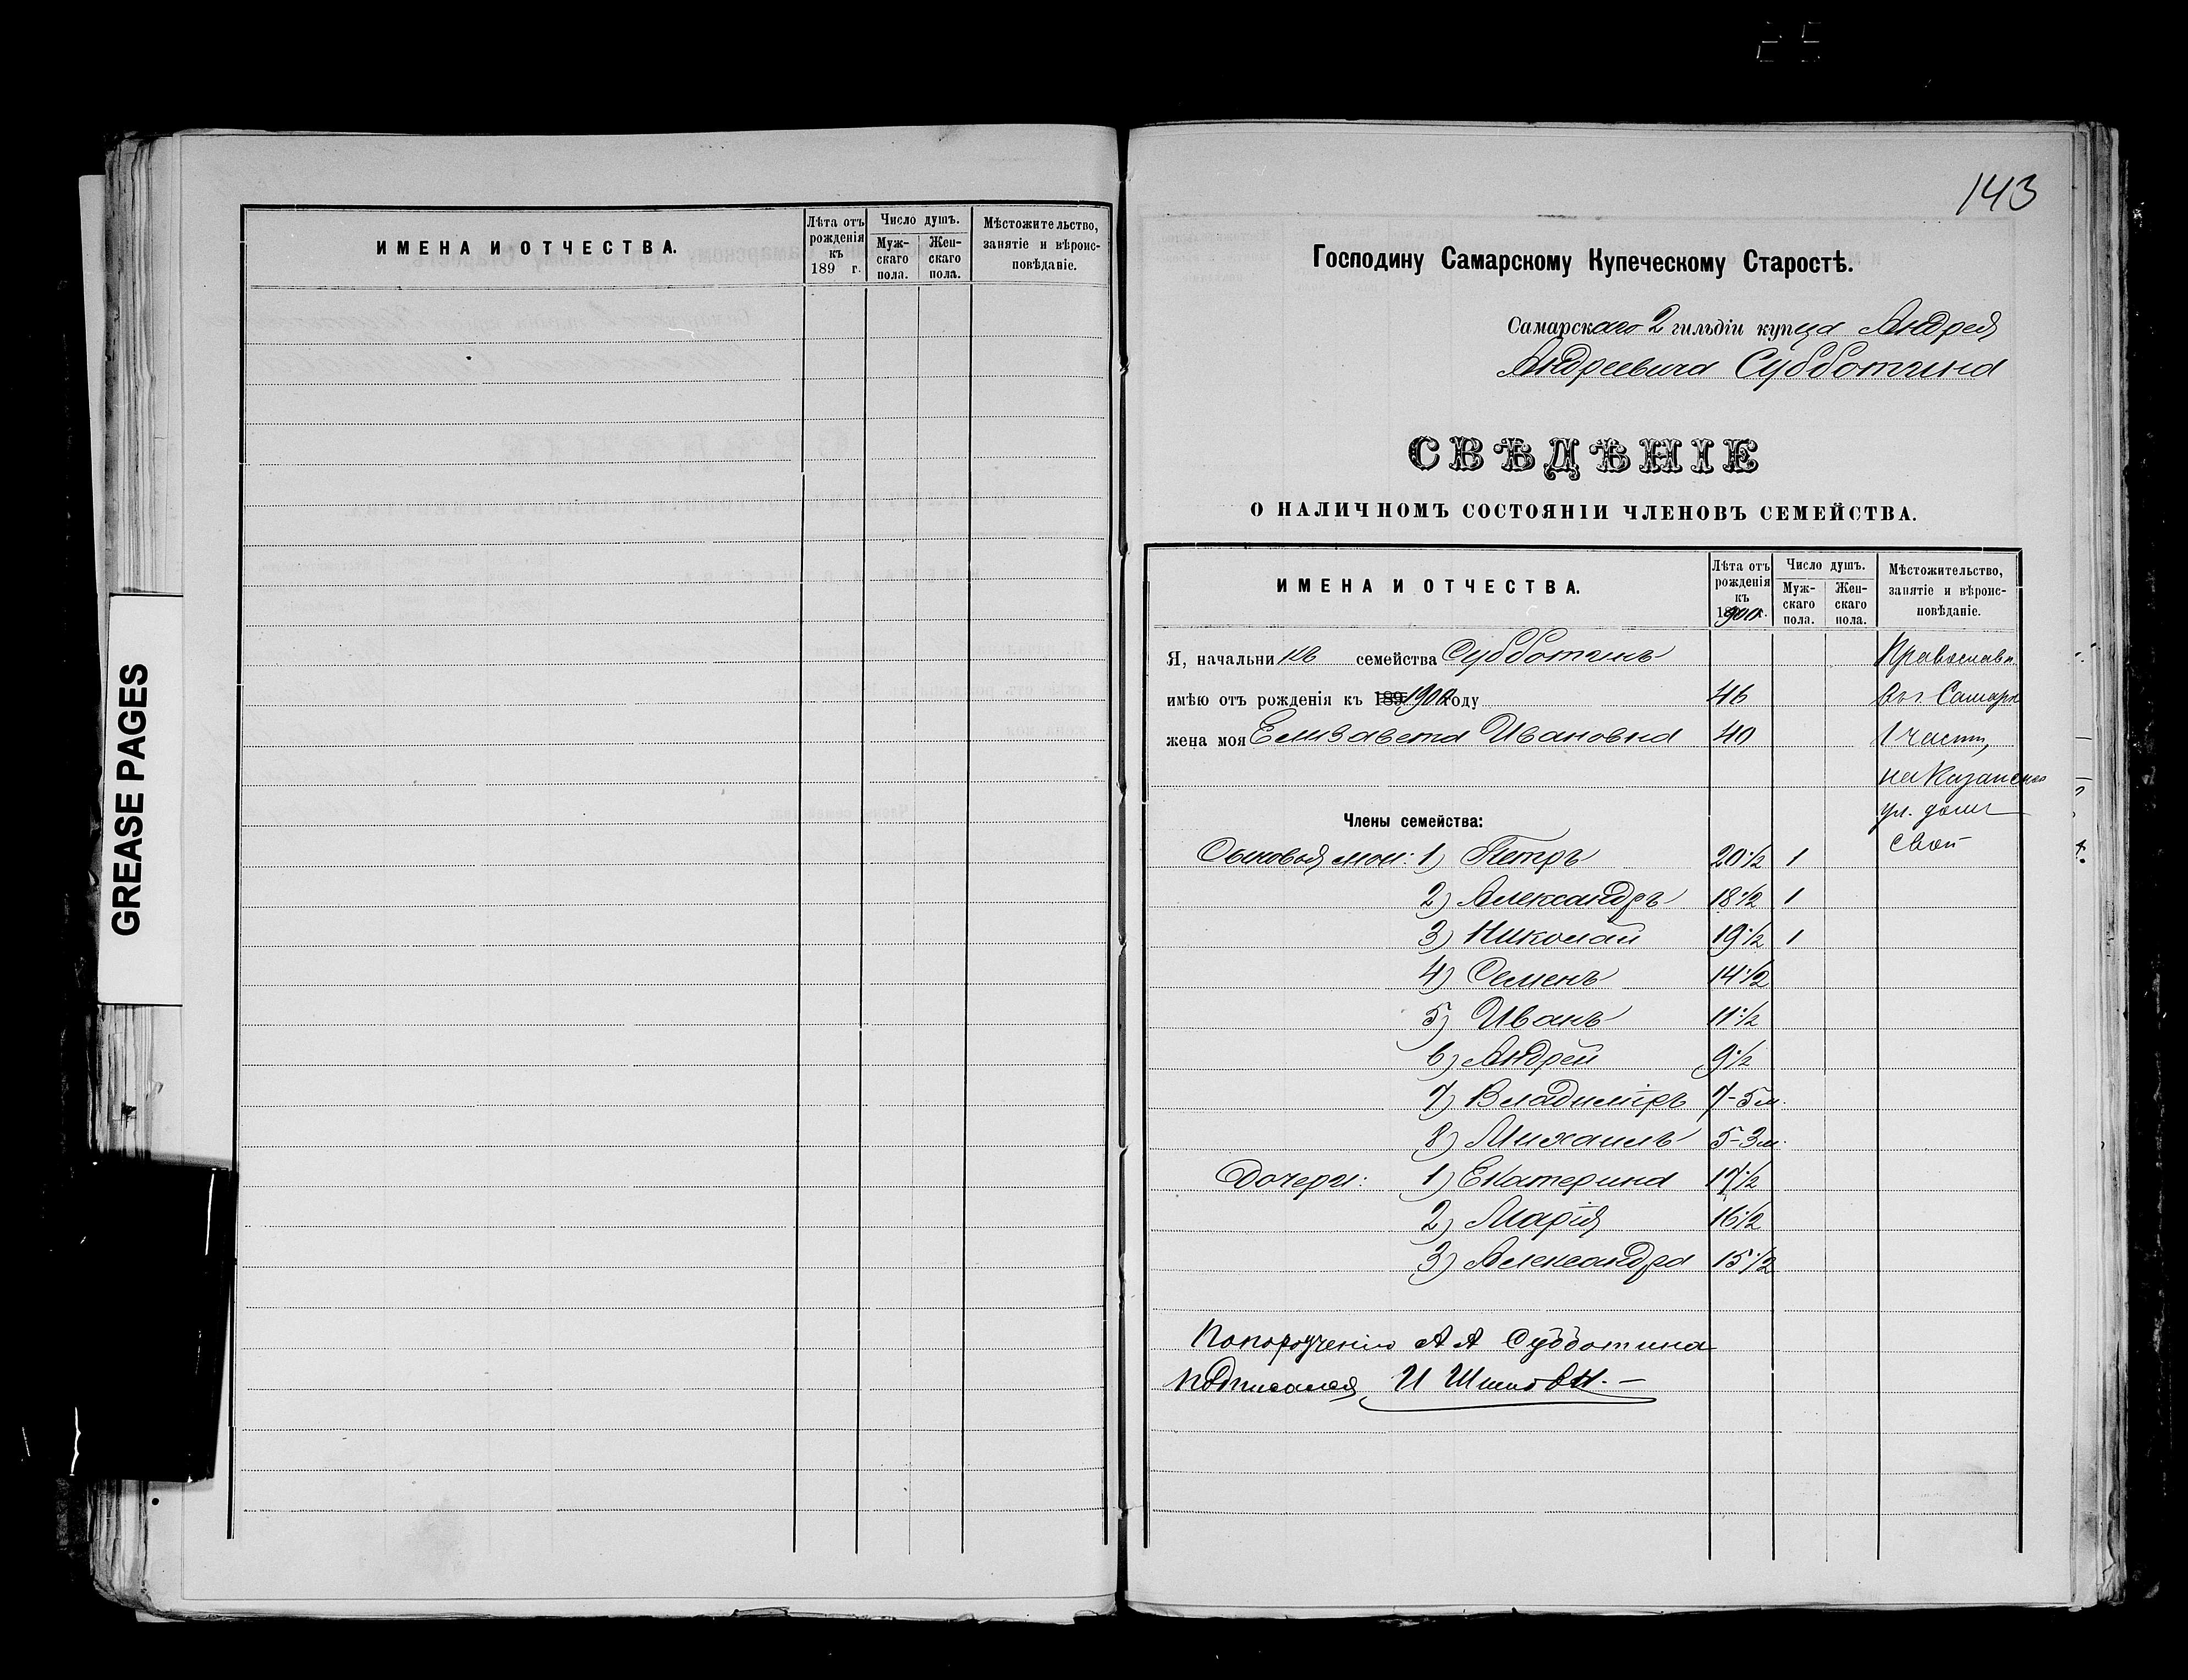 GREASE PAGES
ИМЕНА И ОТЧЕСТВА.
Лѣта отъ рожденія къ 189 г.
Число душъ.
Мужскаго пола.
Женскаго пола.
Мѣстожительство, занятіе и вѣроисповѣданіе.
143
Господину Самарскому Купеческому Старостѣ.
Самарскаго 2 гильдіи купца Андрея
Андреевича Субботина
СВѢДѢНІЕ
О НАЛИЧНОМЪ СОСТОЯНІИ ЧЛЕНОВЪ СЕМЕЙСТВА.
ИМЕНА И ОТЧЕСТВА.
Лѣта отъ рожденія къ 1900 г.
Число душъ.
Мужскаго пола.
Женскаго пола.
Мѣстожительство, занятіе и вѣроисповѣданіе.
Я, начальникъ семейства Субботинъ Православн
имѣю отъ рожденія къ 189 1900 году 46 въ г. Самарѣ
жена моя Елизавета Ивановна 40 1 части,
на Казанской
ул. домъ
Члены семейства:
свой
Сыновья мои: 1) Петръ 20 1/2 1
2) Александръ 18 1/2 1
3) Николай 19 1/2 1
4) Семенъ 14 1/2
5) Иванъ 11 1/2
6) Андрей 9 1/2
7) Владиміръ 7-5 м.
8) Михаилъ 5-3 м.
Дочери: 1) Екатерина 17 1/2
2) Марія 16 1/2
3) Александра 15 1/2
По порученію А А Субботина
подписался И